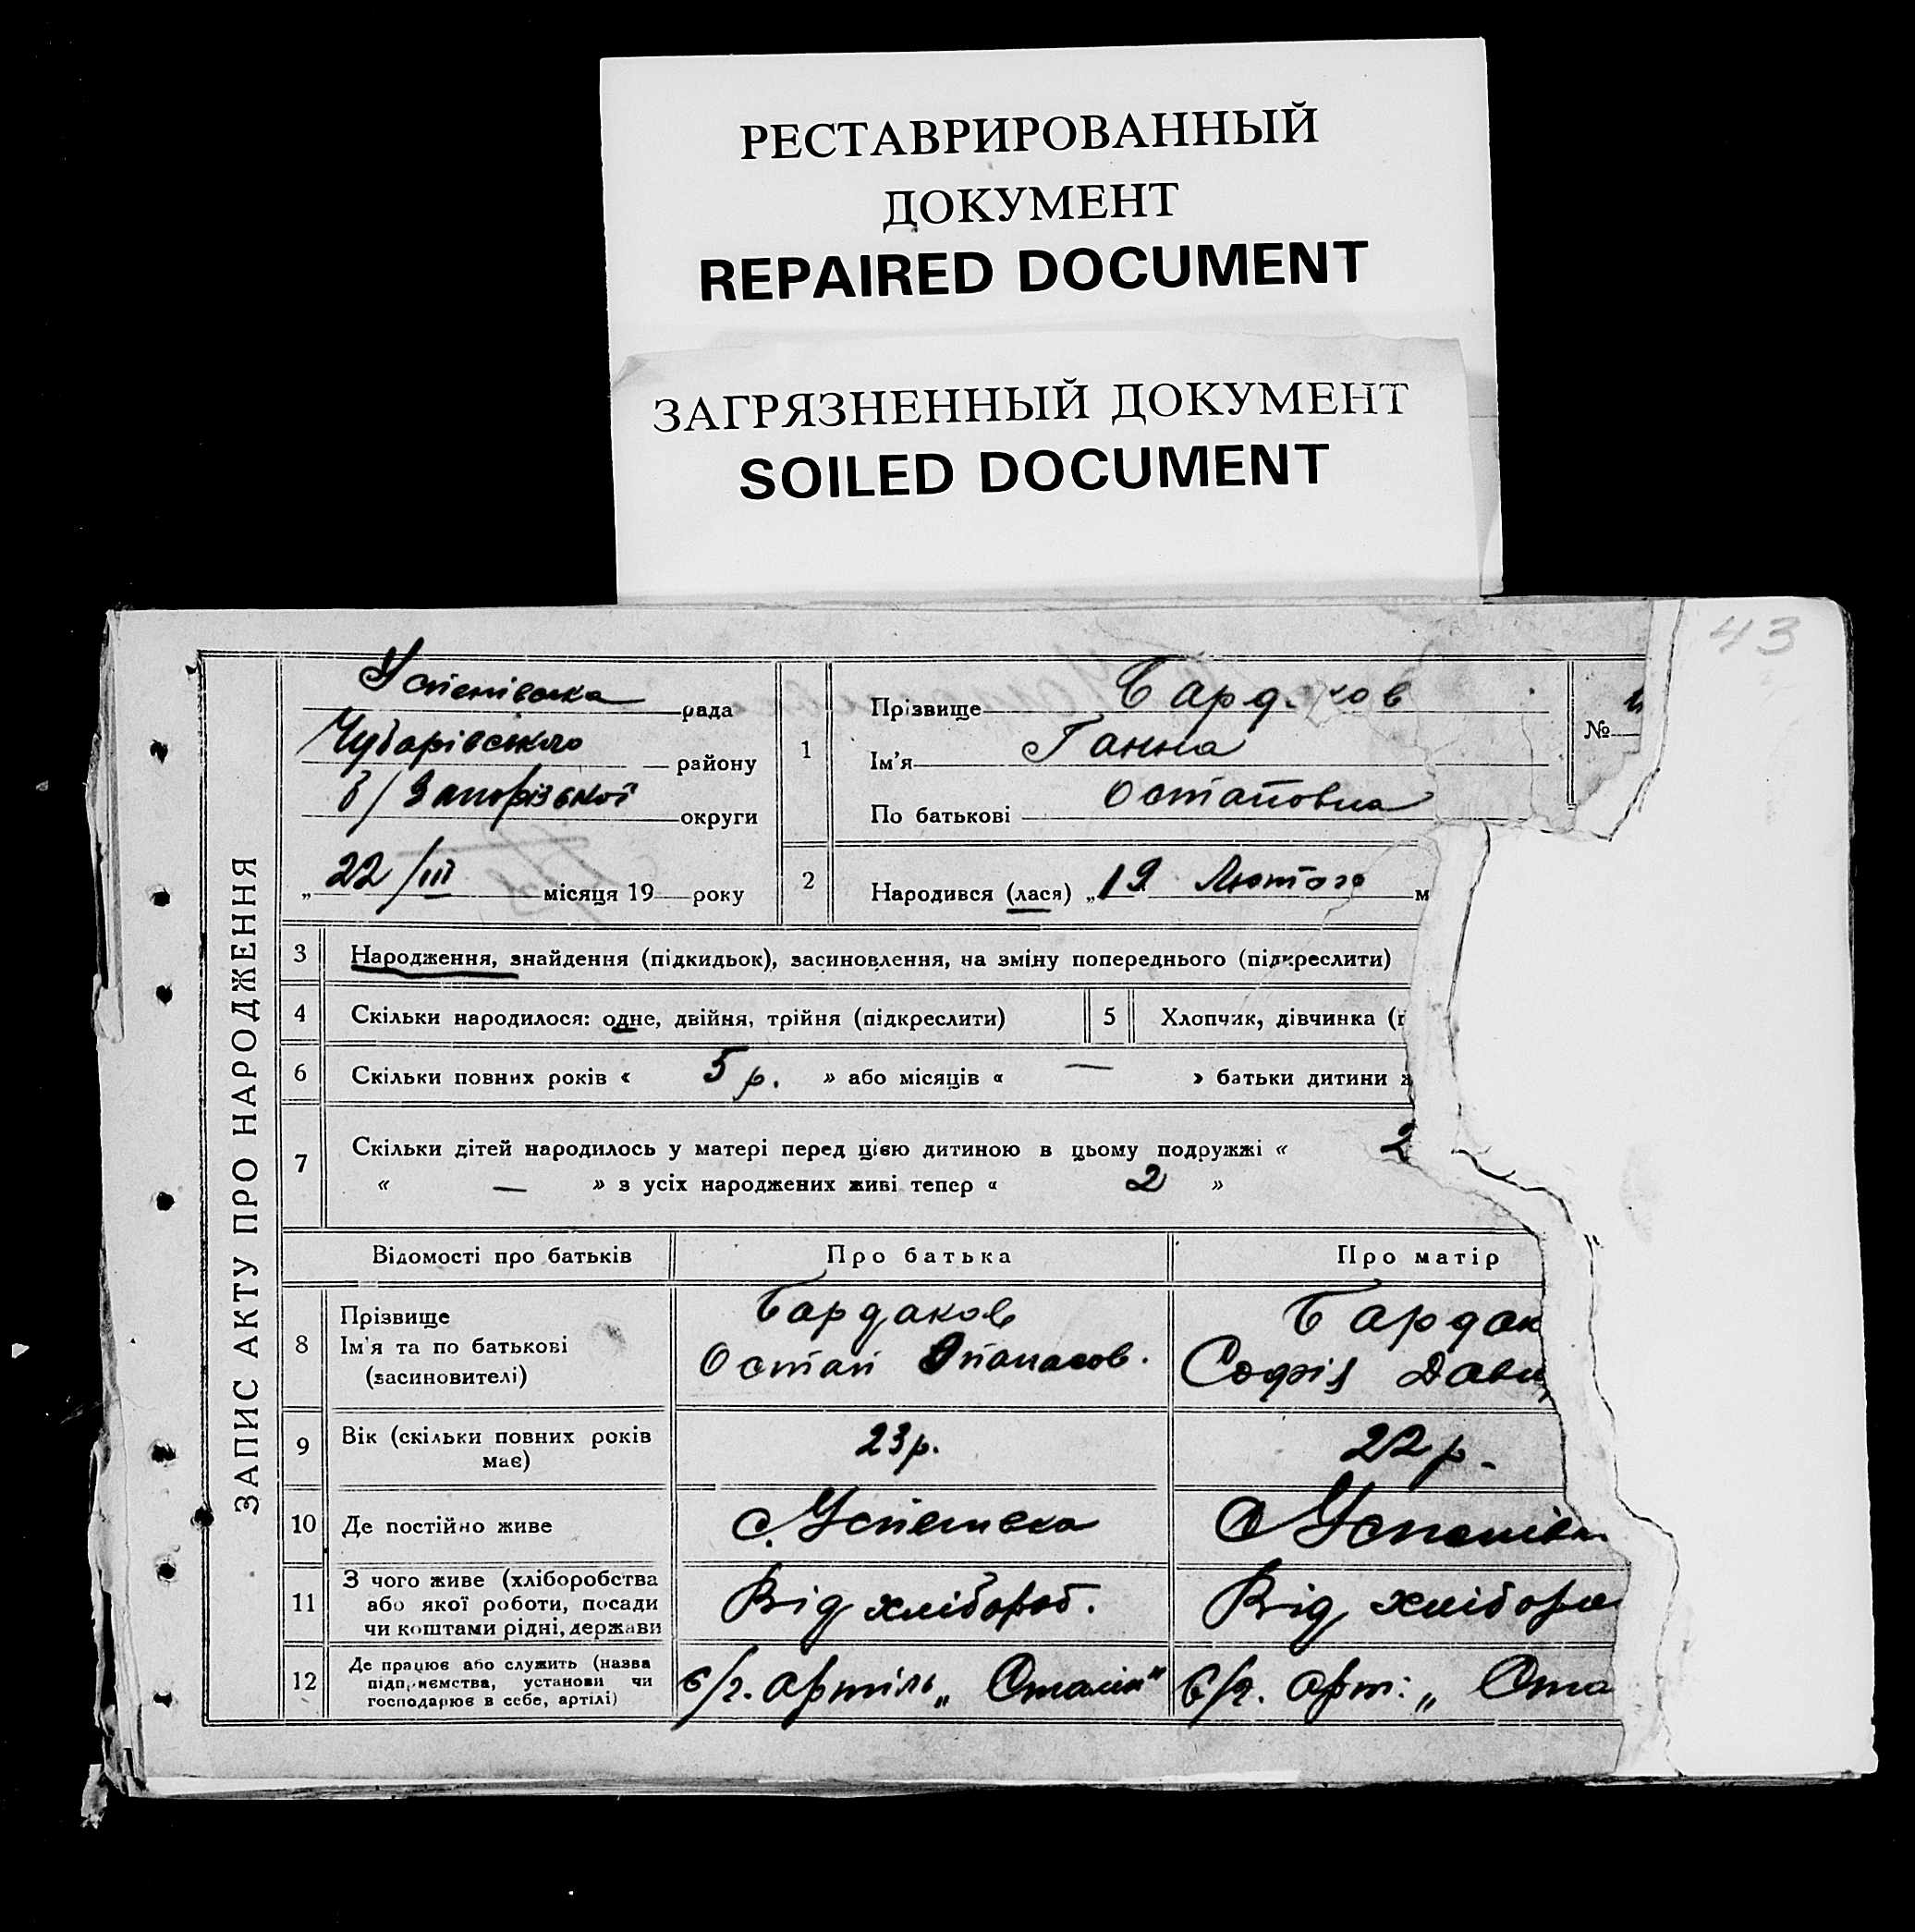 РЕСТАВРИРОВАННЫЙ
ДОКУМЕНТ
REPAIRED DOCUMENT
ЗАГРЯЗНЕННЫЙ ДОКУМЕНТ
SOILED DOCUMENT
43
ЗАПИС АКТУ ПРО НАРОДЖЕННЯ
Успенівська рада
Чубарівського району
б/Запорізької округи
„ 22/III місяця 19 року
1
Прізвище Бард ков
Ім'я Ганна
По батькові Остаповна
№
2 Народився (лася) „19 Лютого м
3 Народження, знайдення (підкидьок), засиновлення, на зміну попереднього (підкреслити)
4 Скільки народилося: одне, двійня, трійня (підкреслити) 5 Хлопчик, дівчинка (п
6 Скільки повних років « 5 р. » або місяців « — » батьки дитини ж
7 Скільки дітей народилось у матері перед цією дитиною в цьому подружжі « 2
« — » з усіх народжених живі тепер « 2 »
Відомості про батьків Про батька Про матір
8 Прізвище Бардаков Бардак
Ім'я та по батькові Остап Опанасов. Софія Дави
(засиновителі)
9 Вік (скільки повних років має) 23 р. 22 р.
10 Де постійно живе с. Успенивка с Успенівк
11 З чого живе (хліборобства або якої роботи, посади чи коштами рідні, держави Від хлібороб. Від хлібороб
12 Де працює або служить (назва підприємства, установи чи господарює в себе, артілі) с/г. артіль „Сталін" с/г. арт: „Ста